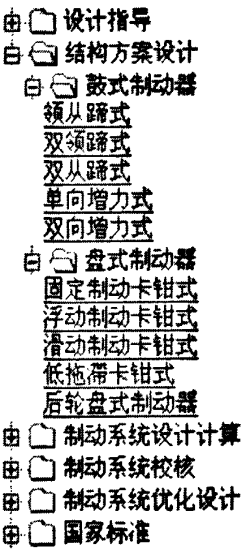 设计指导
结构方案设计
鼓式制动器
领从蹄式
双领蹄式
双从蹄式
单向增力式
双向增力式
盘式制动器
固定制动卡钳式
浮动制动卡钳式
滑动制动卡钳式
低拖滞卡钳式
后轮盘式制动器
制动系统设计计算
制动系统校核
制动系统优化设计
国家标准